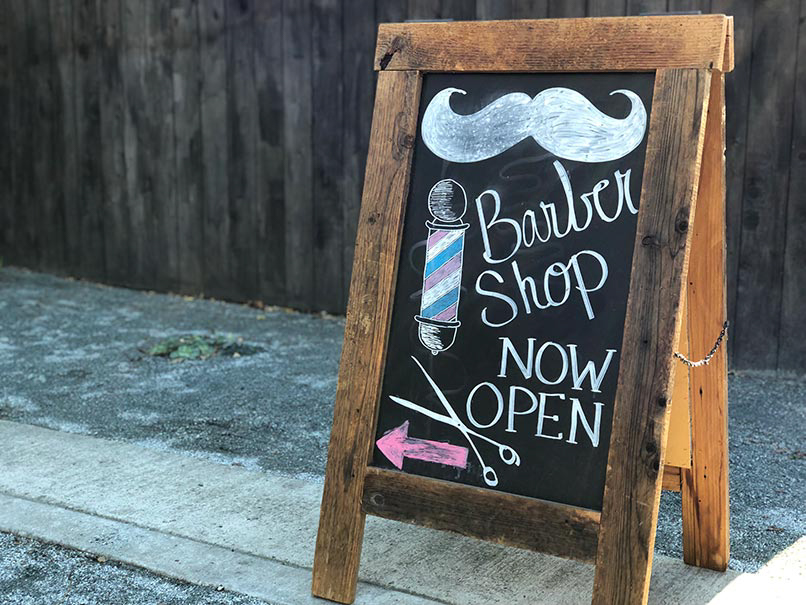 Barber
Shop
NOW
OPEN